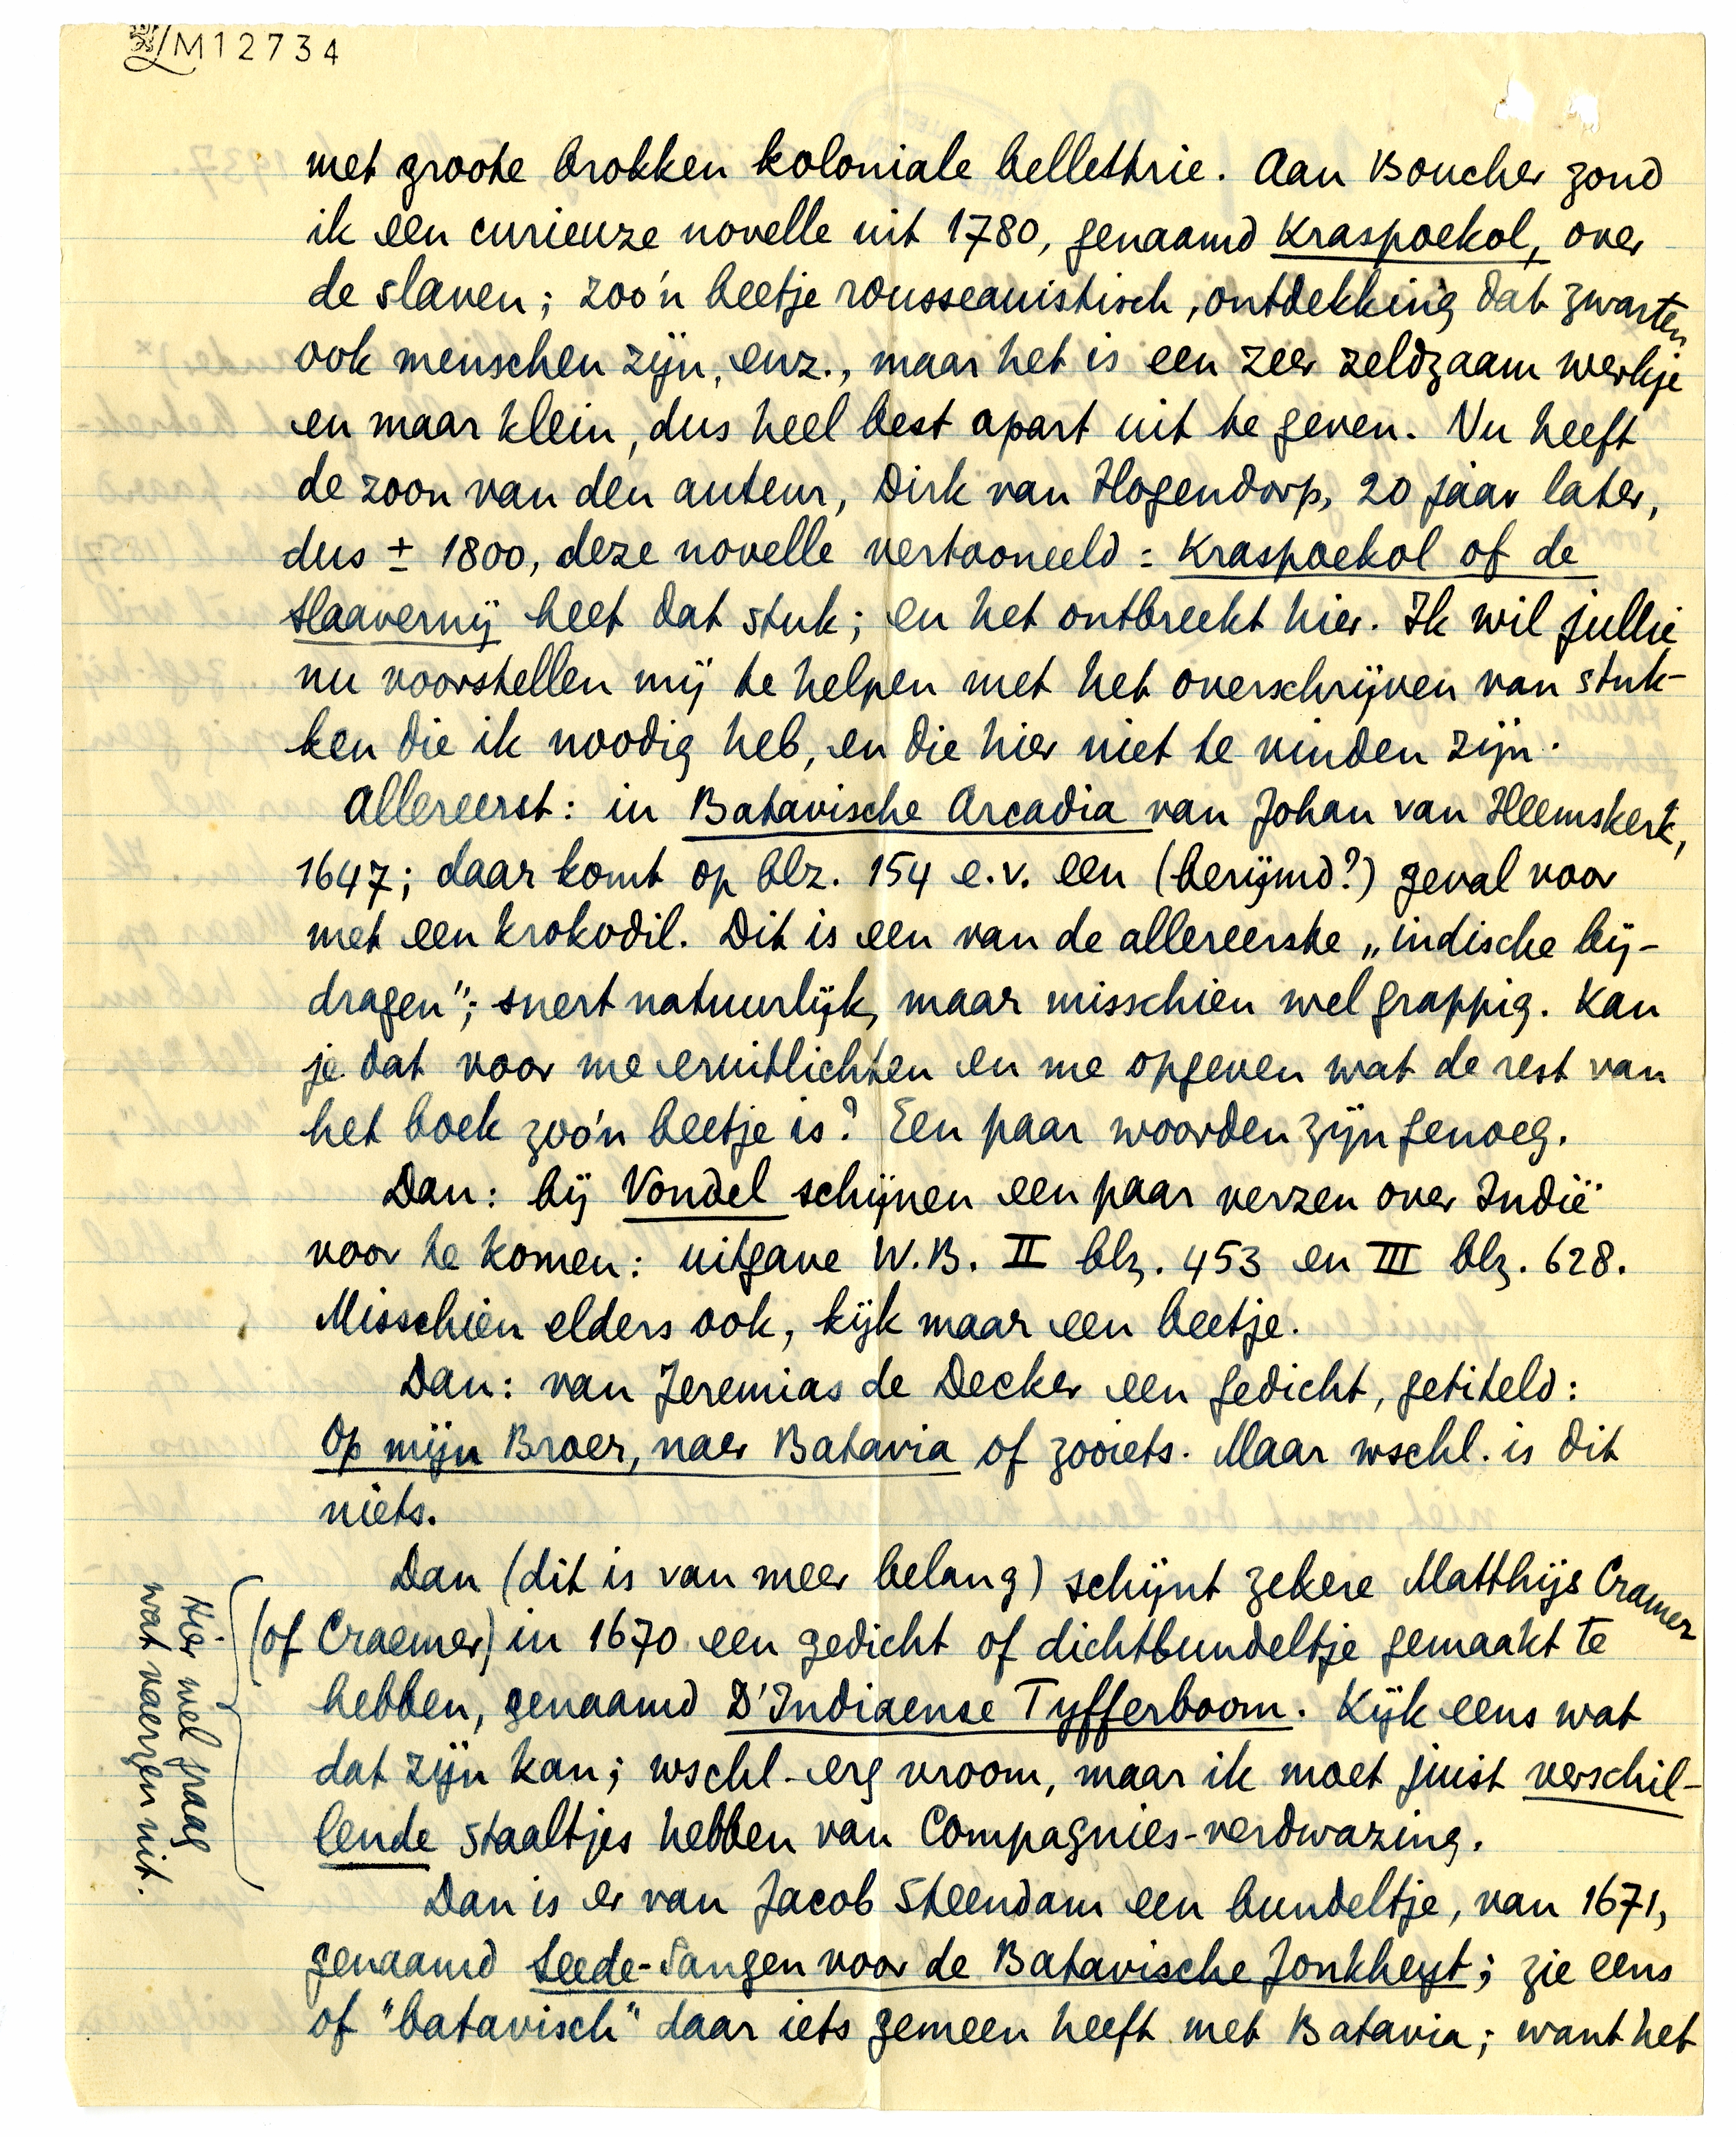 LM12734
met groote brokken koloniale bellettrie. Aan Boucher zond
ik een curieuze novelle uit 1780, genaamd Kraspoekol, over
de slaven; zoo'n beetje rousseauistisch, ontdekking dat zwarten
ook menschen zijn, enz., maar het is een zeer zeldzaam werkje
en maar klein, dus heel best apart uit te geven. Nu heeft
de zoon van den auteur, Dirk van Hogendorp, 20 jaar later,
dus ± 1800, deze novelle vertooneeld: Kraspoekol of de
Slaavernij heet dat stuk; en het ontbreekt hier. Ik wil jullie
nu voorstellen mij te helpen met het overschrijven van stuk-
ken die ik noodig heb, en die hier niet te vinden zijn.
Allereerst: in Batavische Arcadia van Johan van Heemskerk,
1647; daar komt op blz. 154 e.v. een (berijmd?) geval voor
met een krokodil. Dit is een van de allereerste „indische bij-
dragen"; snert natuurlijk, maar misschien wel grappig. Kan
je dat voor me eruitlichten en me opgeven wat de rest van
het boek zoo'n beetje is? Een paar woorden zijn genoeg.
Dan: bij Vondel schijnen een paar verzen over Indië
voor te komen: uitgave W.B. II blz. 453 en III blz. 628.
Misschien elders ook, kijk maar een beetje.
Dan: van Jeremias de Decker een gedicht, getiteld:
Op mijn Broer, naer Batavia of zooiets. Maar wschl. is dit
niets.
Dan (dit is van meer belang) schijnt zekere Matthijs Cramer
(of Craemer) in 1670 een gedicht of dichtbundeltje gemaakt te
hebben, genaamd D'Indiaense Tyfferboom. Kijk eens wat
dat zijn kan; wschl. erg vroom, maar ik moet juist verschil-
lende staaltjes hebben van Compagnies-verdwazing.
Hier wel graag
wat vaerzen uit.
Dan is er van Jacob Steendam een bundeltje, van 1671,
genaamd Seede-Sangen voor de Batavische Jonkheyt; zie eens
of "batavisch" daar iets gemeen heeft met Batavia; want het